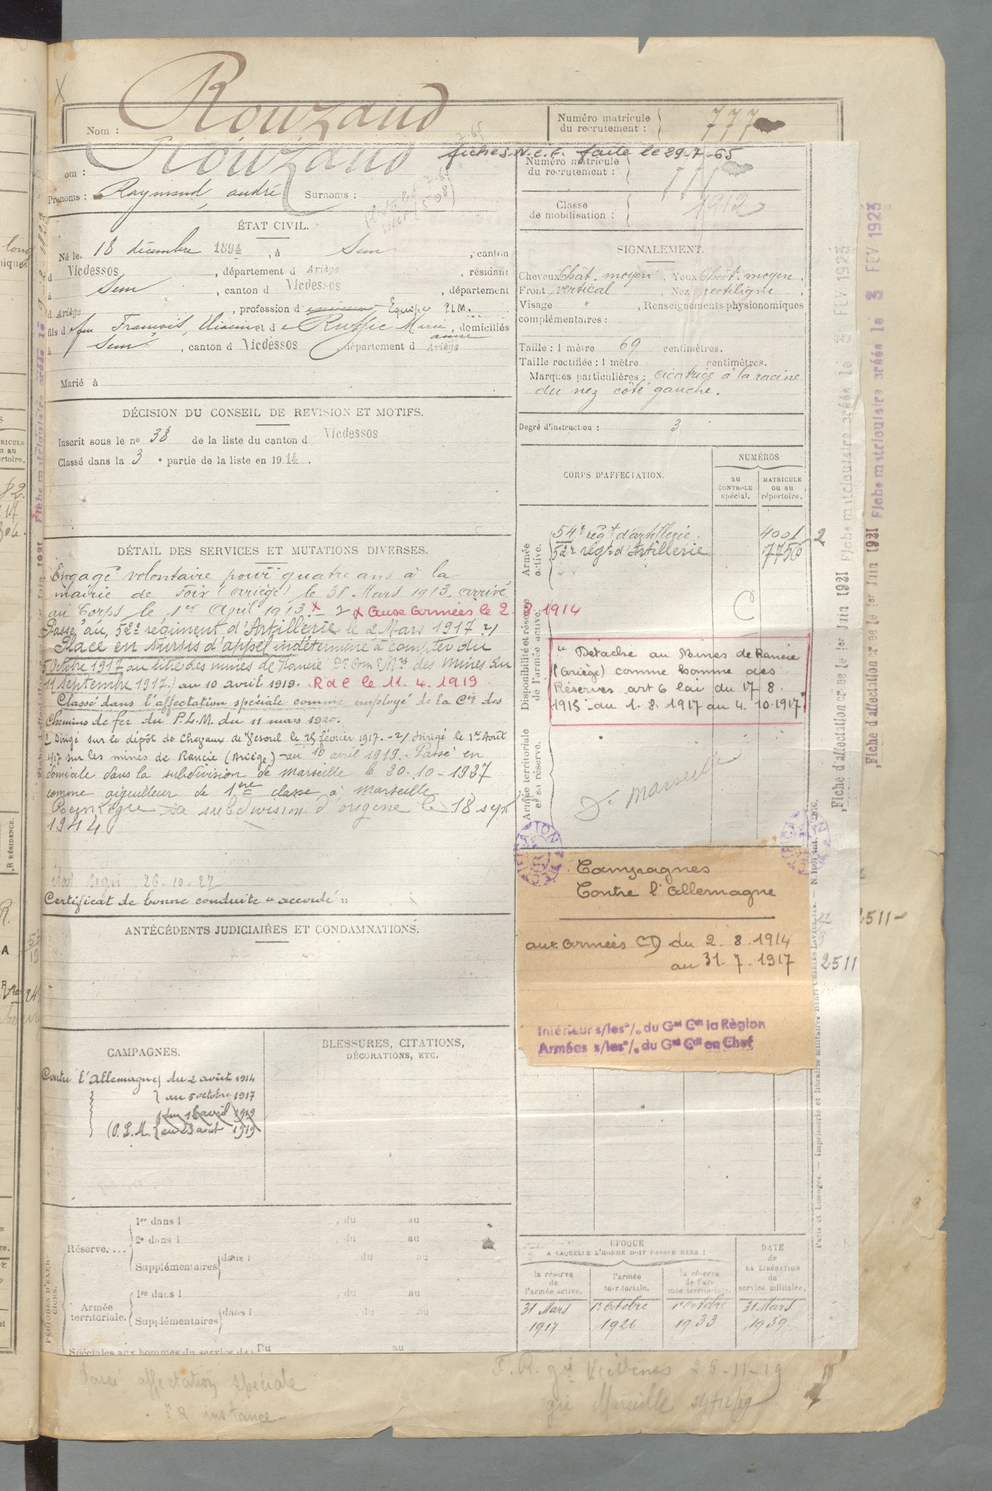 Nom : Rouzaud
Numéro matricule du recrutement : 777
fiches N.C.C. faite le 29-7-65
Nom : Rouzaud
Numéro matricule du recrutement : 777
Prénoms : Raymond, andré Surnoms :
Classe de mobilisation : 1912
ÉTAT CIVIL.
Né le 18 décembre 1894, à Sem, canton
d Vicdessos, département d Ariège, résidant
à Sem, canton d Vicdessos, département
d Ariège, profession d Equipe P.L.M.
fils d feu François, et d Ruffié Marie anne, domiciliés
à Sem, canton d Vicdessos, département d Ariège
Marié à
SIGNALEMENT.
Cheveux chat. moyen. Yeux chat. moyen.
Front vertical, Nez rectiligne
Visage " , Renseignements physionomiques
complémentaires :
Taille : 1 mètre 69 centimètres.
Taille rectifiée : 1 mètre centimètres.
Marques particulières : cicatrice à la racine
du nez côté gauche.
Degré d'instruction : 3
DÉCISION DU CONSEIL DE REVISION ET MOTIFS.
Inscrit sous le no 38 de la liste du canton d Vicdessos
Classé dans la 3 e partie de la liste en 1914.
CORPS D'AFFECTATION.
NUMÉROS
AU CONTRÔLE spécial.
MATRICULE OU AU répertoire.
Armée active.
54e régt d'artillerie. 4001
52e régt d'Artillerie 7756
2
DÉTAIL DES SERVICES ET MUTATIONS DIVERSES.
Engagé volontaire pour quatre ans à la
mairie de Foix (Ariège) le 31 Mars 1913, arrivé
au Corps le 1er April 1913 x 2 x aux armées le 2 8 1914
Passé au 52e régiment d'Artillerie le 2 Mars 1917 2)
Placé en sursis d'appel indéterminé à compter du
5 octobre 1917 au titre des mines de Rancié des mines du
11 septembre 1917.) au 10 avril 1919. R d C le 11.4.1919
Classé dans l'affectation spéciale comme employé de la Cie des
Chemins de fer du P.L.M. du 11 mars 1920.
1) Dirigé sur le dépôt de Chevaux de Vesoul le 25 février 1917.- 2) Dirigé le 1er Août
1917 sur les mines de Rancié (Ariège) - au 10 avril 1919. Passé en
domicile dans la subdivision de Marseille le 30-10-1937
comme aiguilleur de 1ère classe à Marseille
Réintègre sa subdivision d'origine le 18 sept
1944
26-10-27
Certificat de bonne conduite "accordé"
Disponibilité et réserve de l'armée active.
C
"Détaché au Mines de Rancié
(Ariège) comme homme des
Réserves art 6 loi du 17 8.
1915 du 1.8.1917 au 4.10.1917"
Armée territoriale et sa réserve.
Marseille
Campagnes
Contre l'Allemagne
aux armées CD du 2.8.1914
au 31.7.1917
Intérieur s/les o/. du Gal Ct la Région
Armées s/les o/. du Gal Ct en Chef
ANTÉCÉDENTS JUDICIAIRES ET CONDAMNATIONS.
CAMPAGNES.
Contre l'Allemagne du 2 août 1914
au 5 octobre 1917
du 10 avril 1919
(P.L.M. au 23 août 1919
BLESSURES, CITATIONS,
DÉCORATIONS, ETC.
PÉRIODES D'EXERCICES.
Réserve....
1re dans l , du au
2e dans l , du au
Supplémentaires dans l , du au
Armée territoriale.
1re dans l , du au
Supplémentaires dans l , du au
Spéciales aux hommes du service de : Du au
ÉPOQUE
A LAQUELLE L'HOMME DOIT PASSER DANS :
la réserve de l'armée active.
l'armée territoriale.
la réserve de l'armée territoriale.
DATE de LA LIBÉRATION du service militaire.
31 Mars 1917
1er octobre 1926
1er octobre 1933
31 Mars 1939
Fiche matriculaire créée le 3 FEV 1923
Fiche d'affectation créée le 1er Juin 1931
2511
2511
classé affectation spéciale
F.R. 25-11-19
Marseille